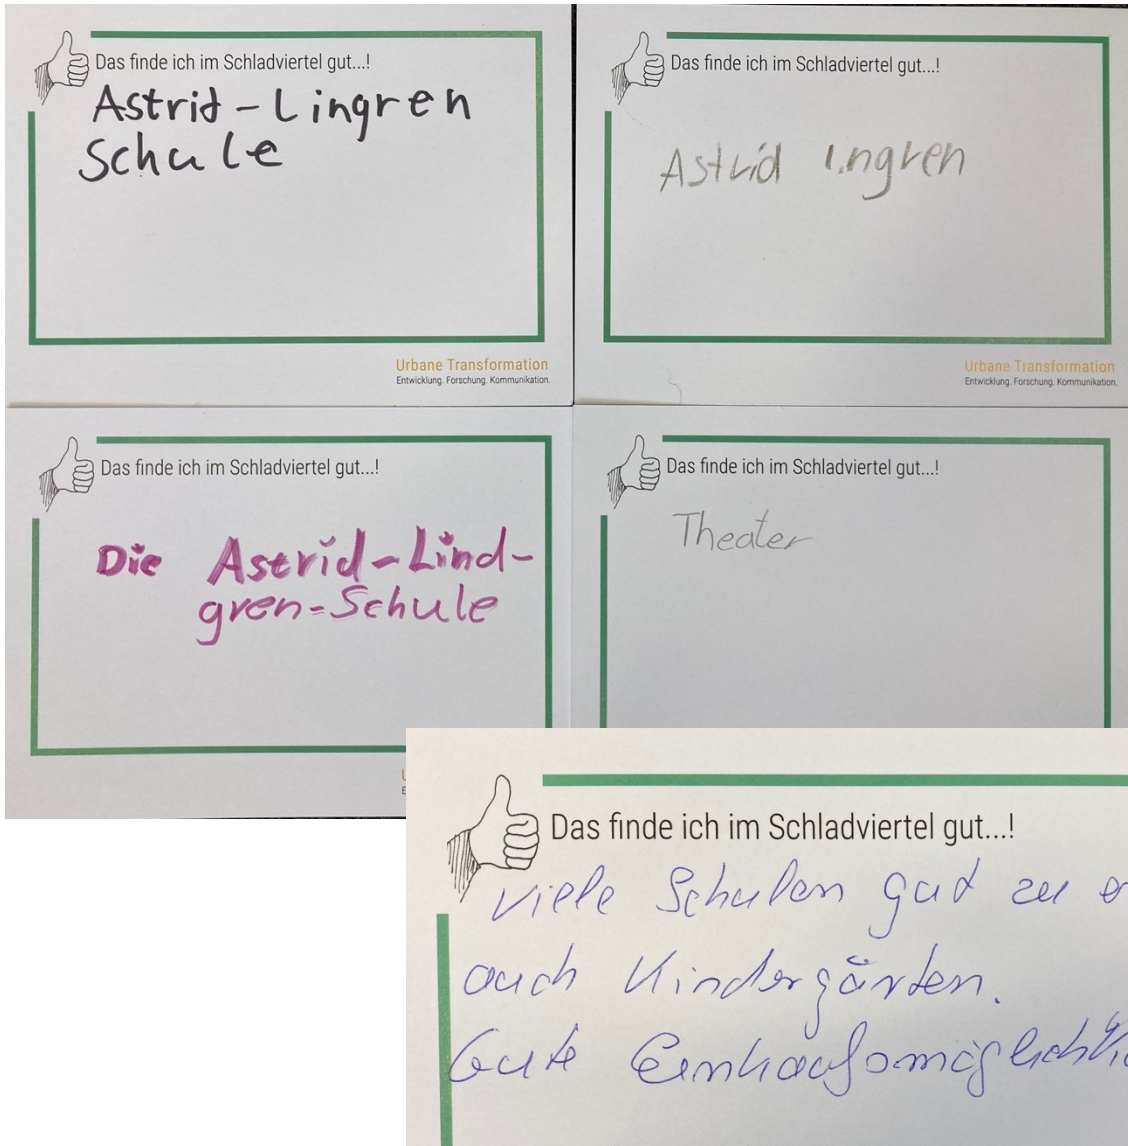 Das finde ich im Schladviertel gut...!
Astrid-Lingren
Schule
Urbane Transformation
Entwicklung. Forschung. Kommunikation.
Das finde ich im Schladviertel gut...!
Astrid Ingren
Urbane Transformation
Entwicklung. Forschung. Kommunikation.
Das finde ich im Schladviertel gut...!
Die Astrid-Lind-
gren-Schule
Das finde ich im Schladviertel gut...!
Theater
Das finde ich im Schladviertel gut...!
Viele Schulen gut zu
auch Kindergärten.
Gute